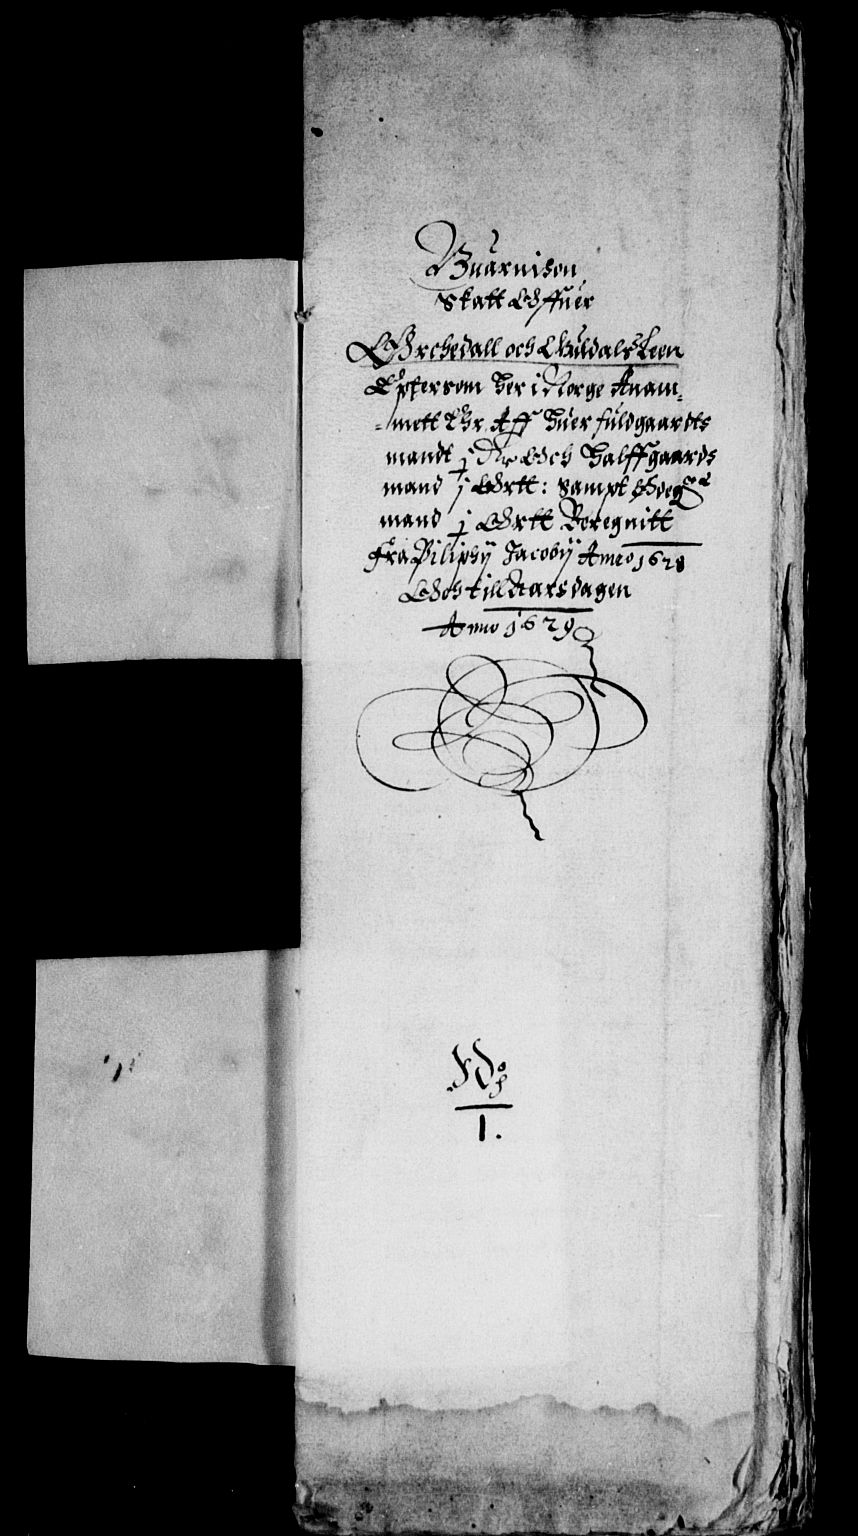 Guarnison
Skatt Offuer
Orchedall och Guldals Leen
Epter som her i Norge Anam-
-mett Er, Aff huer fuldgaardts
mandt j Dr Och halffgaards
mand j Ortt: Sampt Øde
mand j Ortt Beregnitt
Fra Philiphij Jacobij Anno 1628
Och till Aarsdagen
Anno 1629
No
1.